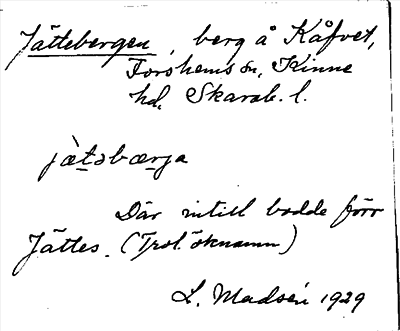 Jättebergen, berg å Kåfvet,
Forshems sn, Kinne
hd, Skarab. l.
jæ̀təbærja
Där intill bodde förr
Jättes. (Trol. öknamn)
L. Madsén 1929